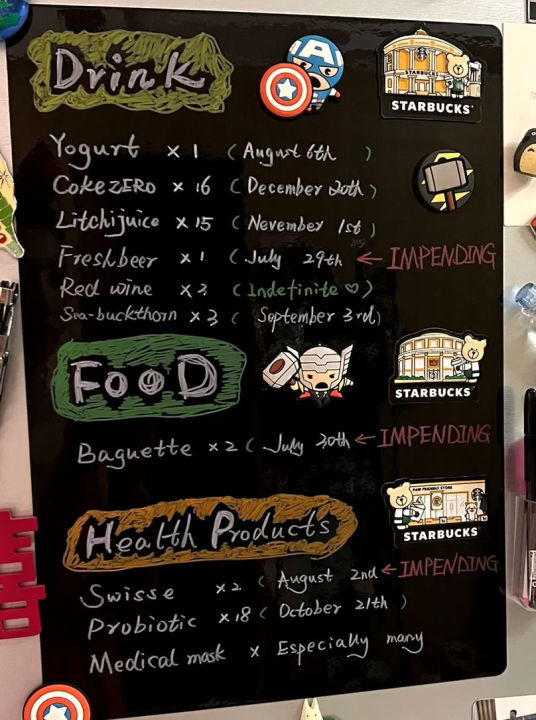 Drink
STARBUCKS
Yogurt × 1 ( August 6th )
COKEZERO × 16 ( December 20th )
Litchijuice × 15 ( Nevember 1st )
Freshbeer × 1 ( July 29th ← IMPENDING
Red wine × 2 ( Indefinite ♡ )
Sea-buckthorn × 3 ( September 3rd )
FOOD
STARBUCKS
Baguette × 2 ( July 30th ← IMPENDING
STARBUCKS
Health Products
Swisse × 2 ( August 2nd ← IMPENDING
Probiotic × 18 ( October 21th )
Medical mask × Especially many
囍